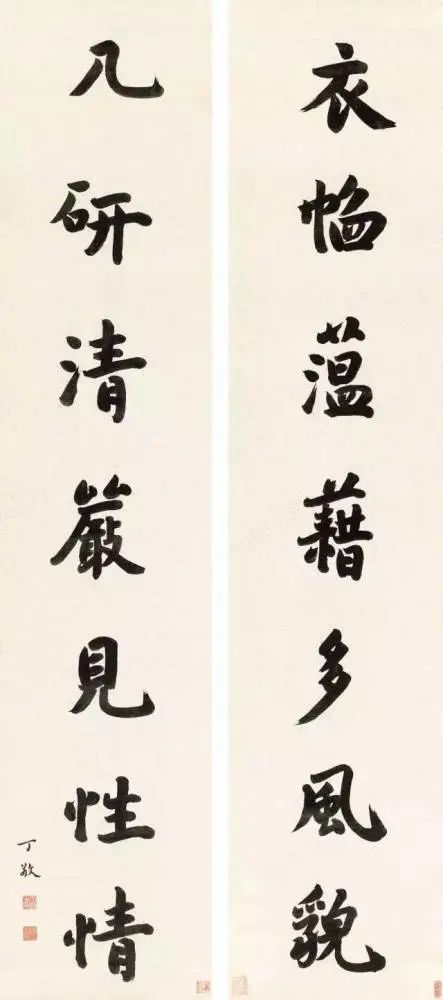 衣帢薀藉多風貌
几研清嚴見性情
丁敬